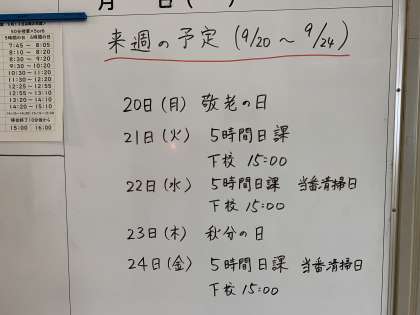 来週の予定 (9/20 ～ 9/24)
20日(月) 敬老の日
21日(火) 5時間日課
下校 15:00
22日(水) 5時間日課 当番清掃日
下校 15:00
23日(木) 秋分の日
24日(金) 5時間日課 当番清掃日
下校 15:00
7:45 ～ 8:05
8:10 ～ 8:20
8:30 ～ 9:20
9:30 ～ 10:20
10:30 ～ 11:20
11:30 ～ 12:20
12:25 ～ 12:55
12:55 ～ 13:10
13:20 ～ 14:10
14:20 ～ 15:10
15:00 16:00